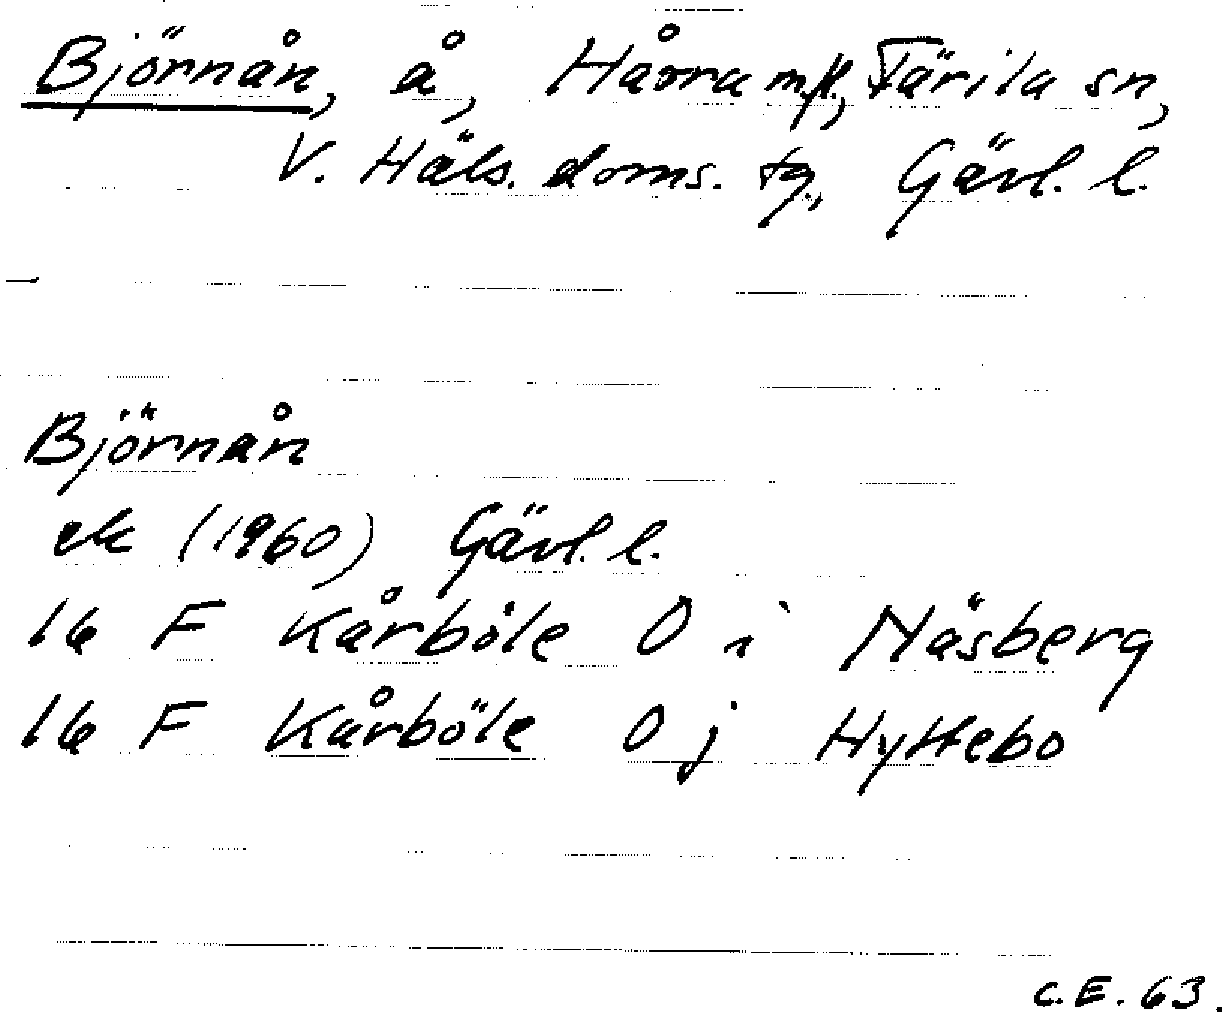 Björnån, å, Hårra m.fl., Färila sn,
V. Häls. doms. tg., Gävl. l.
Björnån
ek (1960) Gävl. l.
16 F Kårböle 0 i Näsberg
16 F Kårböle 0 j Hyttebo
C.E. 63.